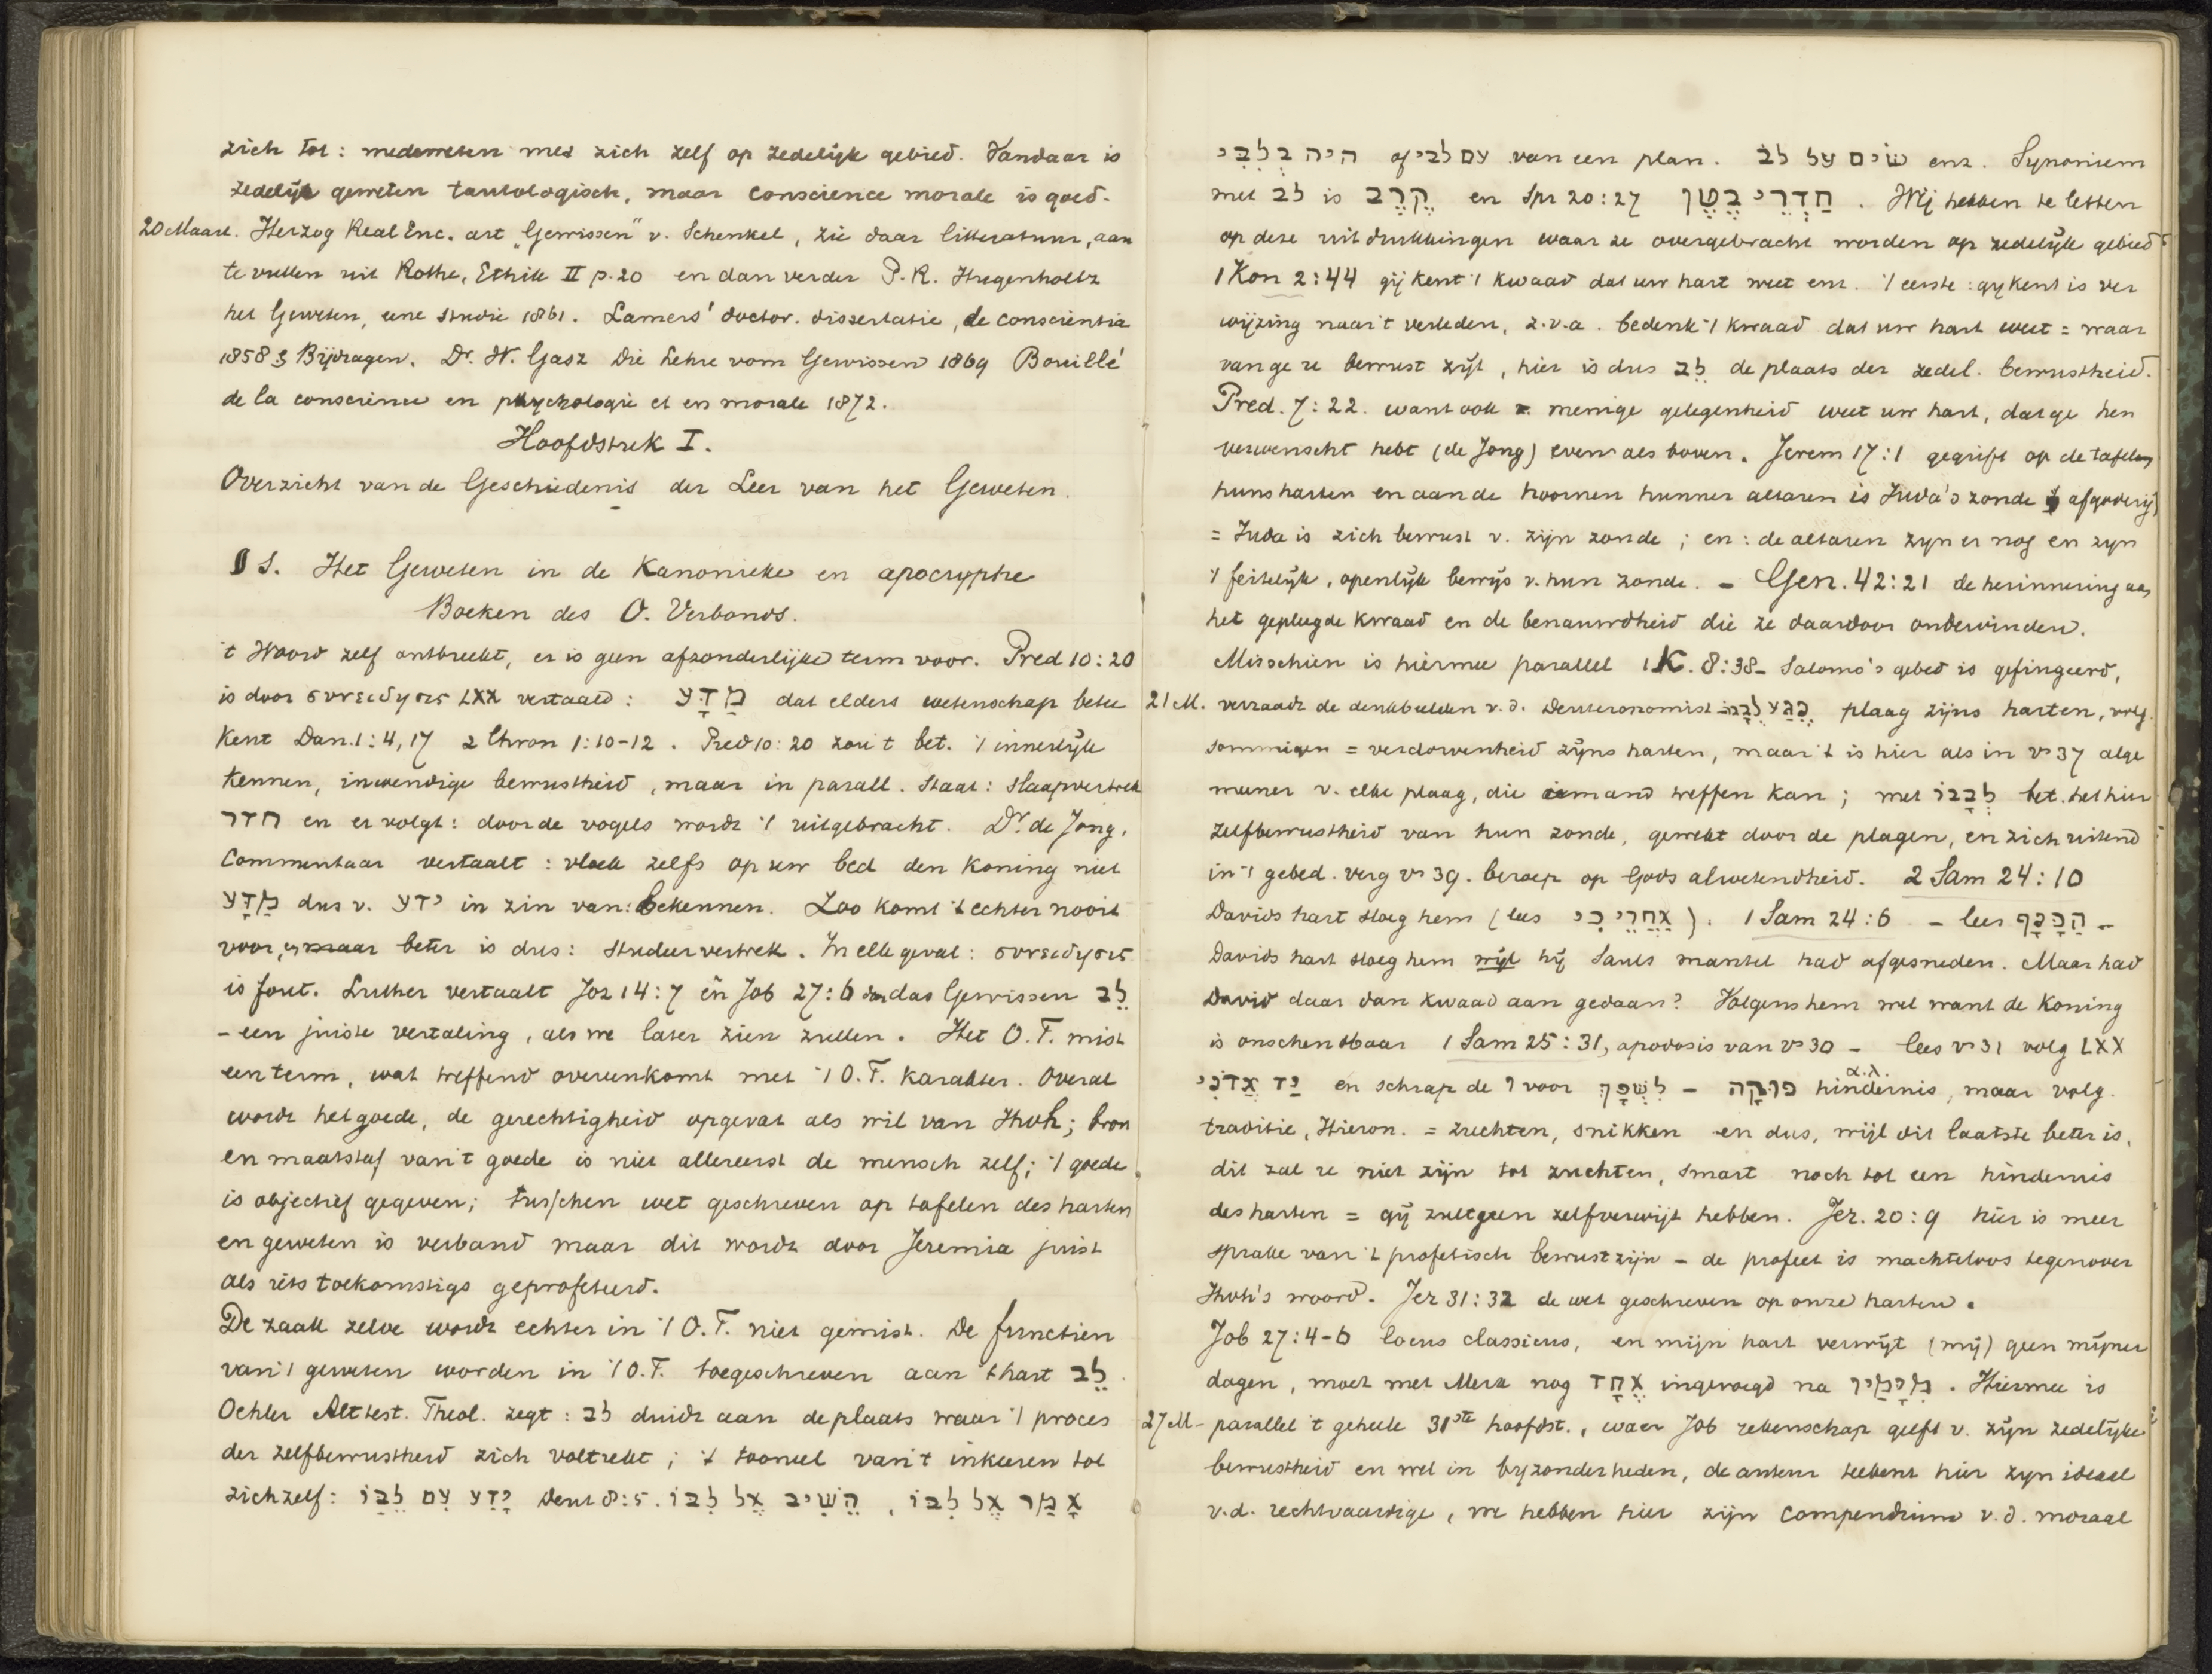 zich tot: medeweten met zich zelf op zedelijk gebied. Vandaar is
zedelijk geweten tautologisch, maar conscience morale is goed.
20 Maart. Herzog Real Enc. art „Gewissen" v. Schenkel, zie daar litteratuur, aan
te vullen uit Rothe, Ethik II p. 20 en dan verder P. R. Hugenholtz
het Geweten, eene studie 1861. Lamers' doctor. dissertatie, de conscientia
1858 & Bijdragen. Dr. W. Gasz Die Lehre vom Gewissen 1869 Bouillé
de la conscience en psychologie et en morale 1872.
Hoofdstuk I.
Overzicht van de Geschiedenis der Leer van het Geweten.
§ 1. Het Geweten in de Kanonieke en apocryphe
Boeken des O. Verbonds.
't Woord zelf ontbreekt, er is geen afzonderlijke term voor. Pred 10:20
is door συνείδησις LXX vertaald: מַדָּע dat elders wetenschap betee
kent Dan. 1:4, 17 2 Chron 1:10-12. Pred 10:20 zou 't bet. 't innerlijk
kennen, inwendige bewustheid, maar in parall. staat: slaapvertrek
חדר en er volgt: door de vogels wordt 't uitgebracht. Dr. de Jong,
Commentaar vertaalt: vloek zelfs op uw bed den koning niet
מַדָּע dus v. ידע in zin van: bekennen. Zoo komt 't echter nooit
voor, beter is dus: studeervertrek. In elk geval: συνειδησις
is fout. Luther vertaalt Joz 14:7 en Job 27:6 das Gewissen לֵב
– een juiste vertaling, als we later zien zullen. Het O.T. mist
een term, wat treffend overeenkomt met 't O.T. karakter. Overal
wordt het goede, de gerechtigheid opgevat als wil van Jhvh; bron
en maatstaf van 't goede is niet allereerst de mensch zelf; 't goede
is objectief gegeven; tusschen wet geschreven op tafelen des harten
en geweten is verband maar dit wordt door Jeremia juist
als iets toekomstigs geprofeteerd.
De zaak zelve wordt echter in 't O.T. niet gemist. De functien
van 't geweten worden in 't O.T. toegeschreven aan 't hart לֵב.
Oehler Alttest. Theol. zegt: לֵב duidt aan de plaats waar 't proces
der zelfbewustheid zich voltrekt; 't tooneel van 't inkeeren tot
zichzelf: יָדַע עִם לֵבָּו Deut 8:5. הֵשִׁיב אֶל לִבּוֹ, אָמַר אֶל לִבּוֹ
היה בִּלְבָבִי of עם לבי van een plan. שׂים על לב enz. Synoniem
met לב is קֶרֶב en Spr 20:27 חַדְרֵי בֶטֶן. Wij hebben te letten
op deze uitdrukkingen waar ze overgebracht worden op zedelijk gebied
1 Kon 2:44 gij kent 't kwaad dat uw hart weet enz. 't eerste: gij kent is ver
wijzing naar 't verleden, z.v.a. bedenk 't kwaad dat uw hart weet = waar
van ge u bewust zijt, hier is dus לֵב de plaats der zedel. bewustheid.
Pred. 7:22. want ook menige gelegenheid weet uw hart, dat ge hen
verwenscht hebt (de Jong) even als boven. Jerem 17:1 gegrift op de tafelen
huns harten en aan de hoornen hunner altaren is Juda's zonde afgoderij)
= Juda is zich bewust v. zijn zonde; en: de altaren zijn er nog en zijn
't feitelijk, openlijk bewijs v. hun zonde. – Gen. 42:21 de herinnering aan
het gepleegde kwaad en de benauwdheid die ze daardoor ondervinden.
Misschien is hiermee parallel 1 K. 8:38 – Salomo's gebed is gefingeerd,
21 M. verraadt de denkbeelden v. d. Deuteronomist – נֶגַע לְבָבוֹ plaag zijns harten, volg.
sommigen = verdorvenheid zijns harten, maar 't is hier als in vs 37 alge
meener v. elke plaag, die iemand treffen kan; met לְבָבוֹ bet. het hier
zelfbewustheid van hun zonde, gewekt door de plagen, en zich uitend
in 't gebed. verg vs 39. beroep op Gods alwetendheid. 2 Sam 24:10
Davids hart sloeg hem (lees אַחֲרֵי כִּי). 1 Sam 24:6 – lees הַכָּנָף –
Davids hart sloeg hem wijl hij Sauls mantel had afgesneden. Maar had
David daar dan kwaad aan gedaan? Volgens hem wel want de koning
is onschendbaar 1 Sam 25:31, apodosis van vs 30 – lees vs 31 volg LXX
יַד אֲדֹנִי en schrap de ו voor לִשְׁפָּךְ – פוּקָה α.λ. hindernis, maar volg.
traditie, Hieron. = zuchten, snikken en dus, wijl dit laatste beter is,
dit zal u niet zijn tot zuchten, smart noch tot een hindernis
des harten = gij zult geen zelfverwijt hebben. Jer. 20:9 hier is meer
sprake van 't profetisch bewustzijn – de profeet is machteloos tegenover
Jhvh's woord. Jer 31:32 de wet geschreven op onze harten.
Job 27:4-6 locus classicus, en mijn hart verwijt (mij) geen mijner
dagen, moet met Merx nog אֶחָד ingevoegd na מִיָּמַיִךָ. Hiermee is
27 M – parallel 't geheele 31ste hoofdst., waar Job rekenschap geeft v. zijn zedelijke
bewustheid en wel in bijzonderheden, de auteur teekent hier zijn ideaal
v.d. rechtvaardige, we hebben hier zijn compendium v. d. moraal